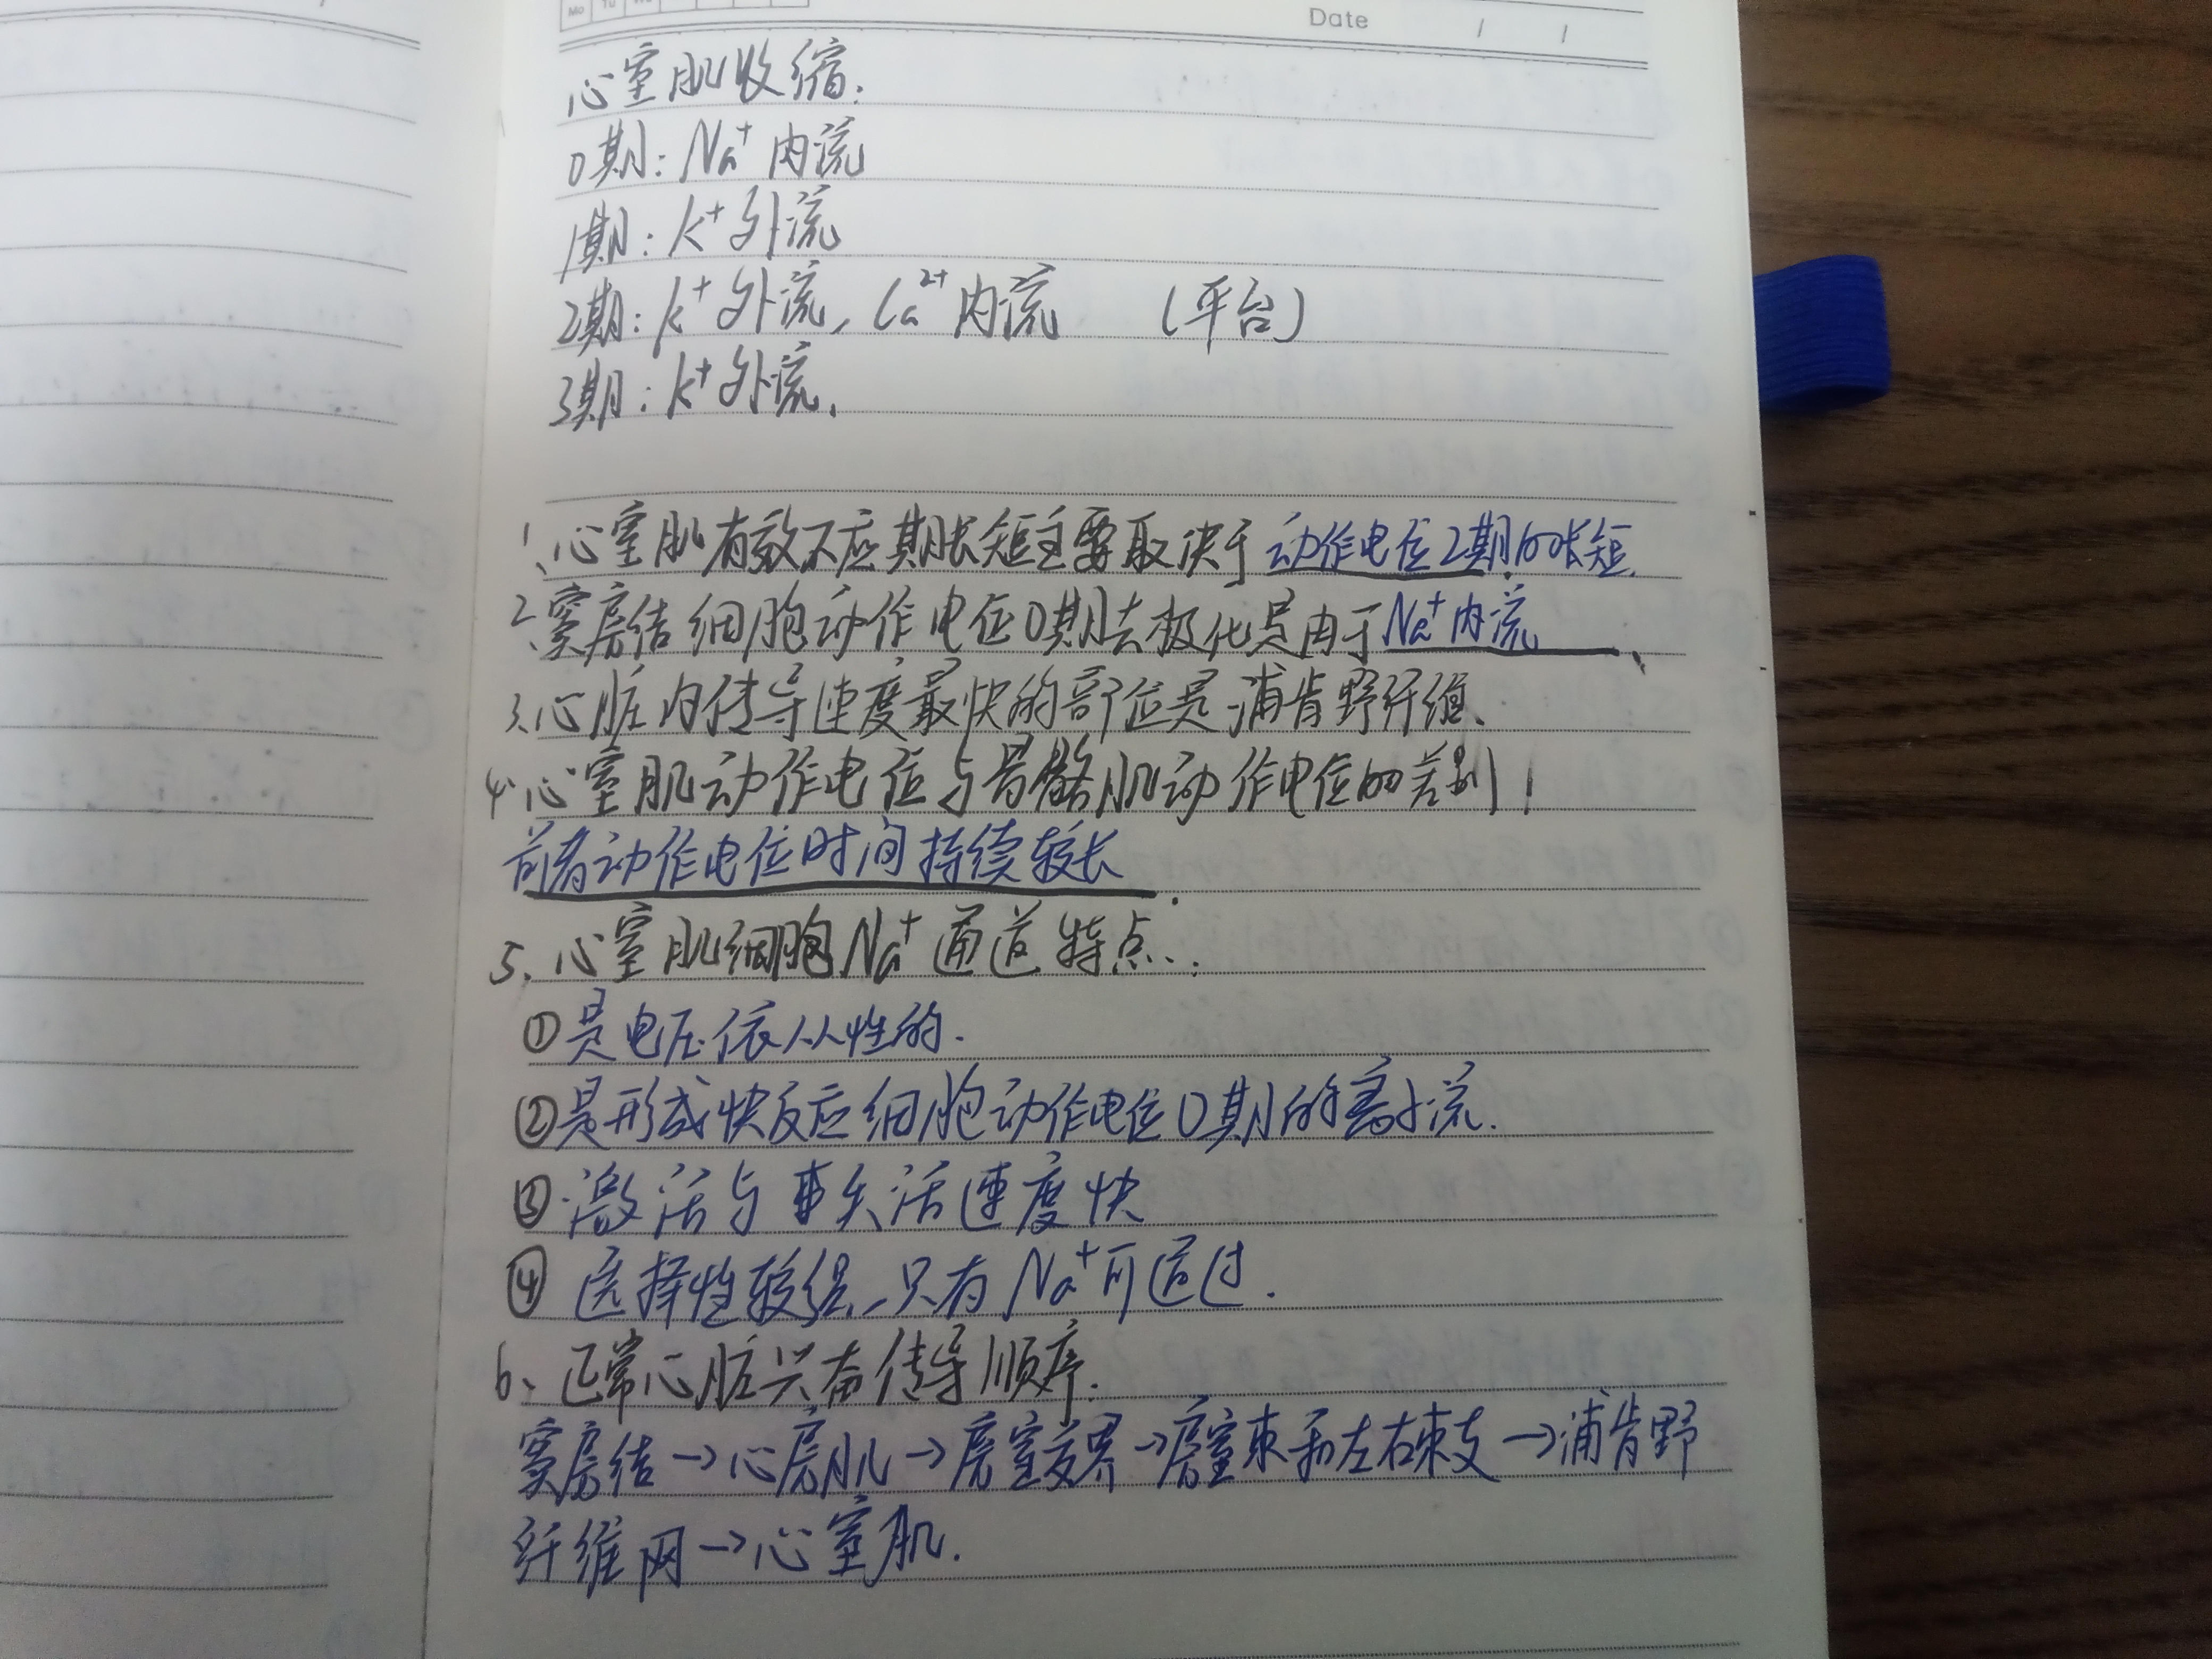 Mo Tu We
Date / /
心室肌收缩.
0期: Na⁺内流
1期: K⁺外流
2期: K⁺外流, Ca²⁺内流 (平台)
3期: K⁺外流.
1、心室肌有效不应期长短主要取决于动作电位2期的长短.
2、窦房结细胞动作电位0期去极化是由于Na⁺内流、
3、心脏内传导速度最快的部位是浦肯野纤维、
4、心室肌动作电位与骨骼肌动作电位的差别!
前者动作电位时间持续较长.
5、心室肌细胞Na⁺通道特点:
①是电压依从性的.
②是形成快反应细胞动作电位0期的离子流.
③激活与失活速度快
④选择性较强,只有Na⁺可通过.
6、正常心脏兴奋传导顺序.
窦房结→心房肌→房室交界→房室束和左右束支→浦肯野
纤维网→心室肌.